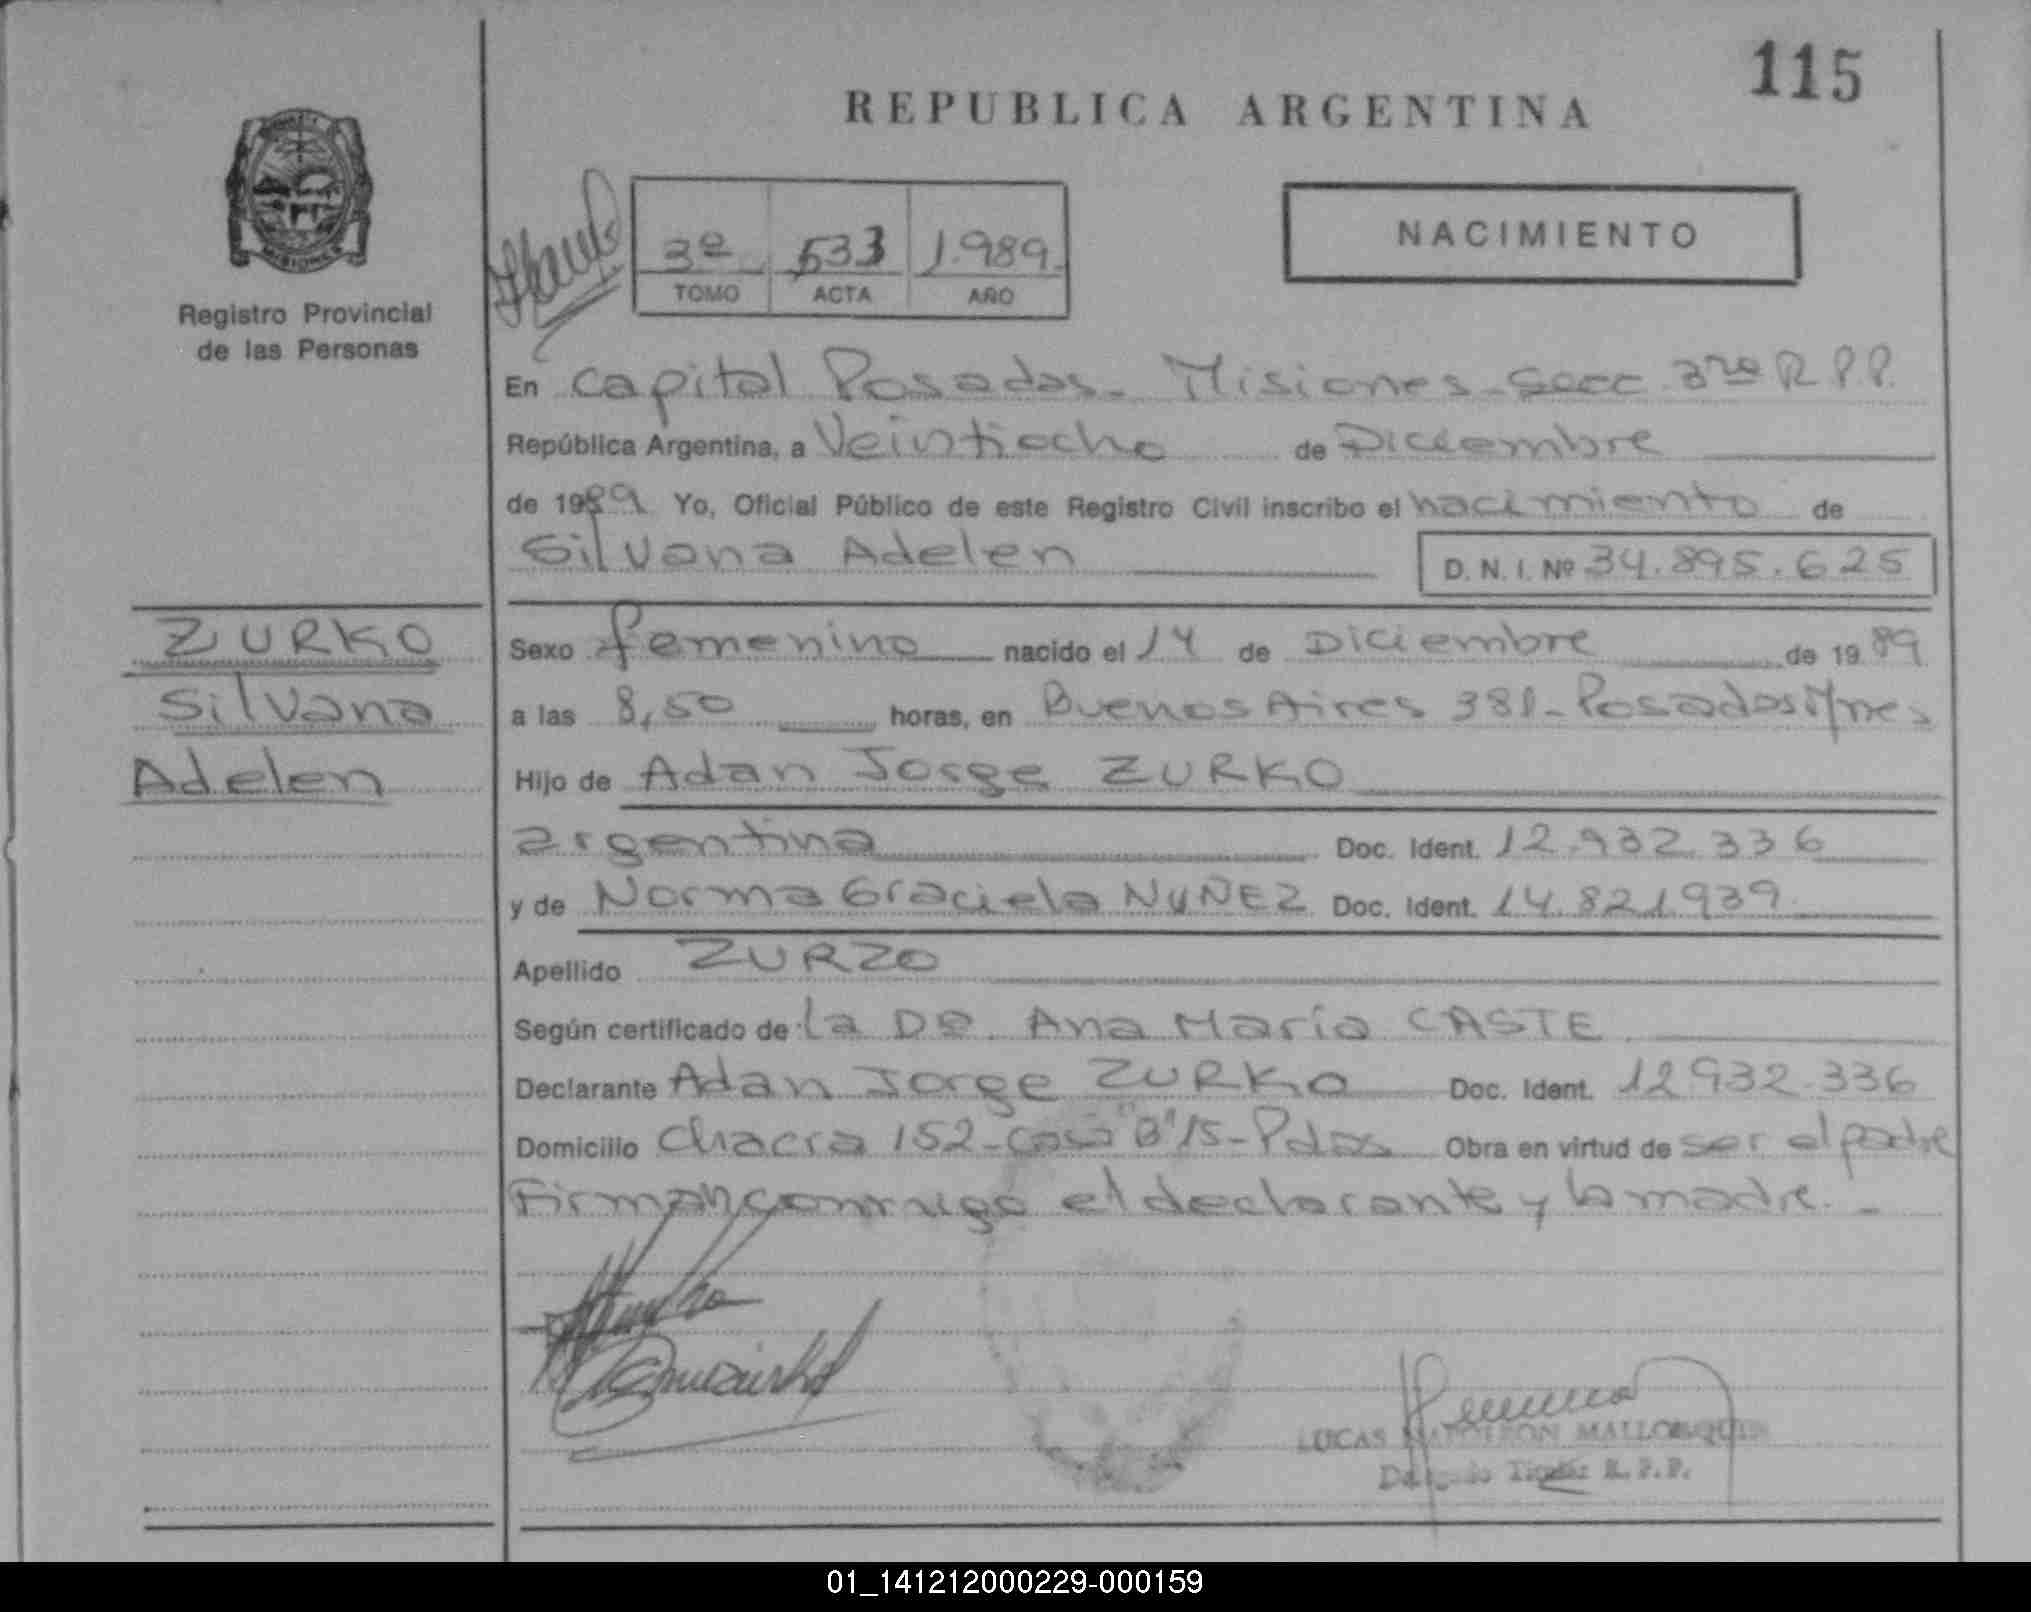 115
REPUBLICA ARGENTINA
NACIMIENTO
3º 533 1.989.
TOMO ACTA AÑO
MISIONES
Registro Provincial
de las Personas
En Capital Posadas. Misiones - Secc 3ra R.P.P.
República Argentina, a Veintiocho de Diciembre
de 1989 Yo, Oficial Público de este Registro Civil inscribo el nacimiento de
Silvana Adelen D. N. I. Nº 34.895.625
ZURKO
Silvana
Adelen
Sexo femenino nacido el 14 de Diciembre de 19 89
a las 8,50 horas, en Buenos Aires 381 - Posadas Mnes
Hijo de Adan Jorge ZURKO
argentina Doc. Ident. 12.932.336
y de Norma Graciela NUÑEZ Doc. Ident. 14.821.939
Apellido ZURZO
Según certificado de la DRA. Ana María CASTE
Declarante Adan Jorge ZURKO Doc. Ident. 12932.336
Domicilio Chacra 152 - casa "B" 15 - Pdas Obra en virtud de ser el padre
Firman conmigo el declarante y la madre. -
LUCAS NAPOLEON MALLORQUIN
Delegado Titular R.P.P.
01_141212000229-000159